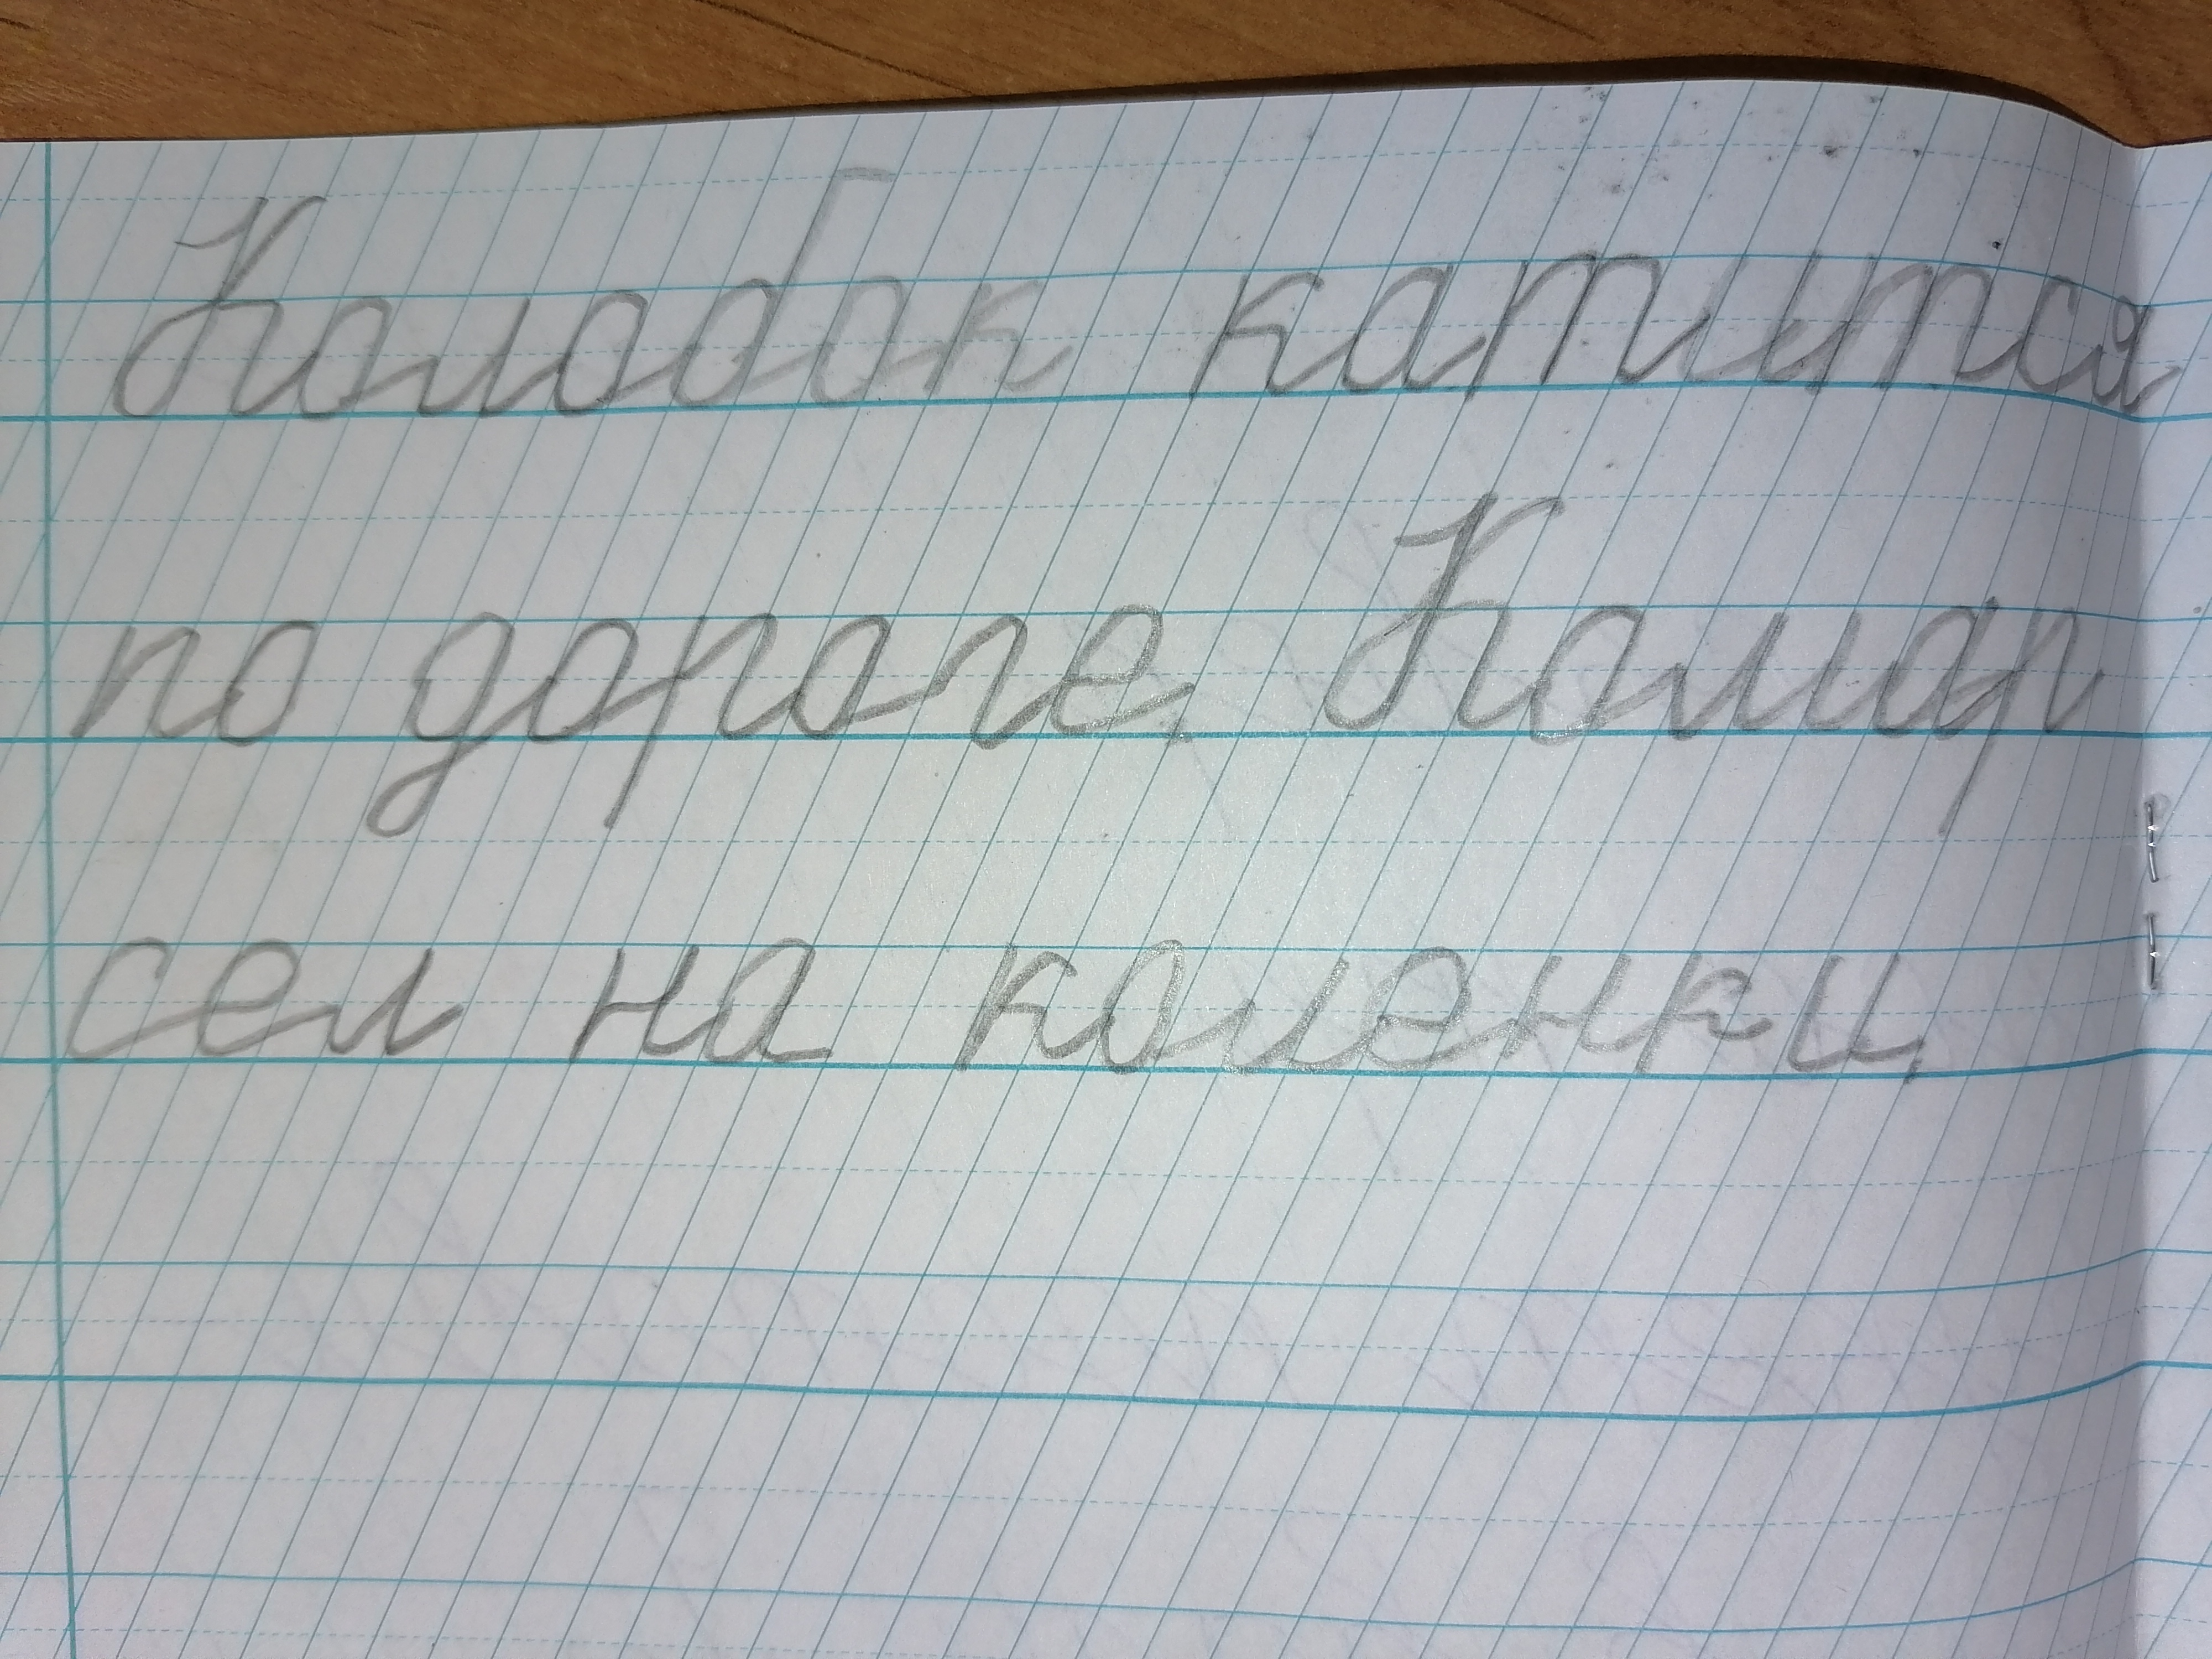 Колобок катится
по дороге. Комар
сел на коленки.